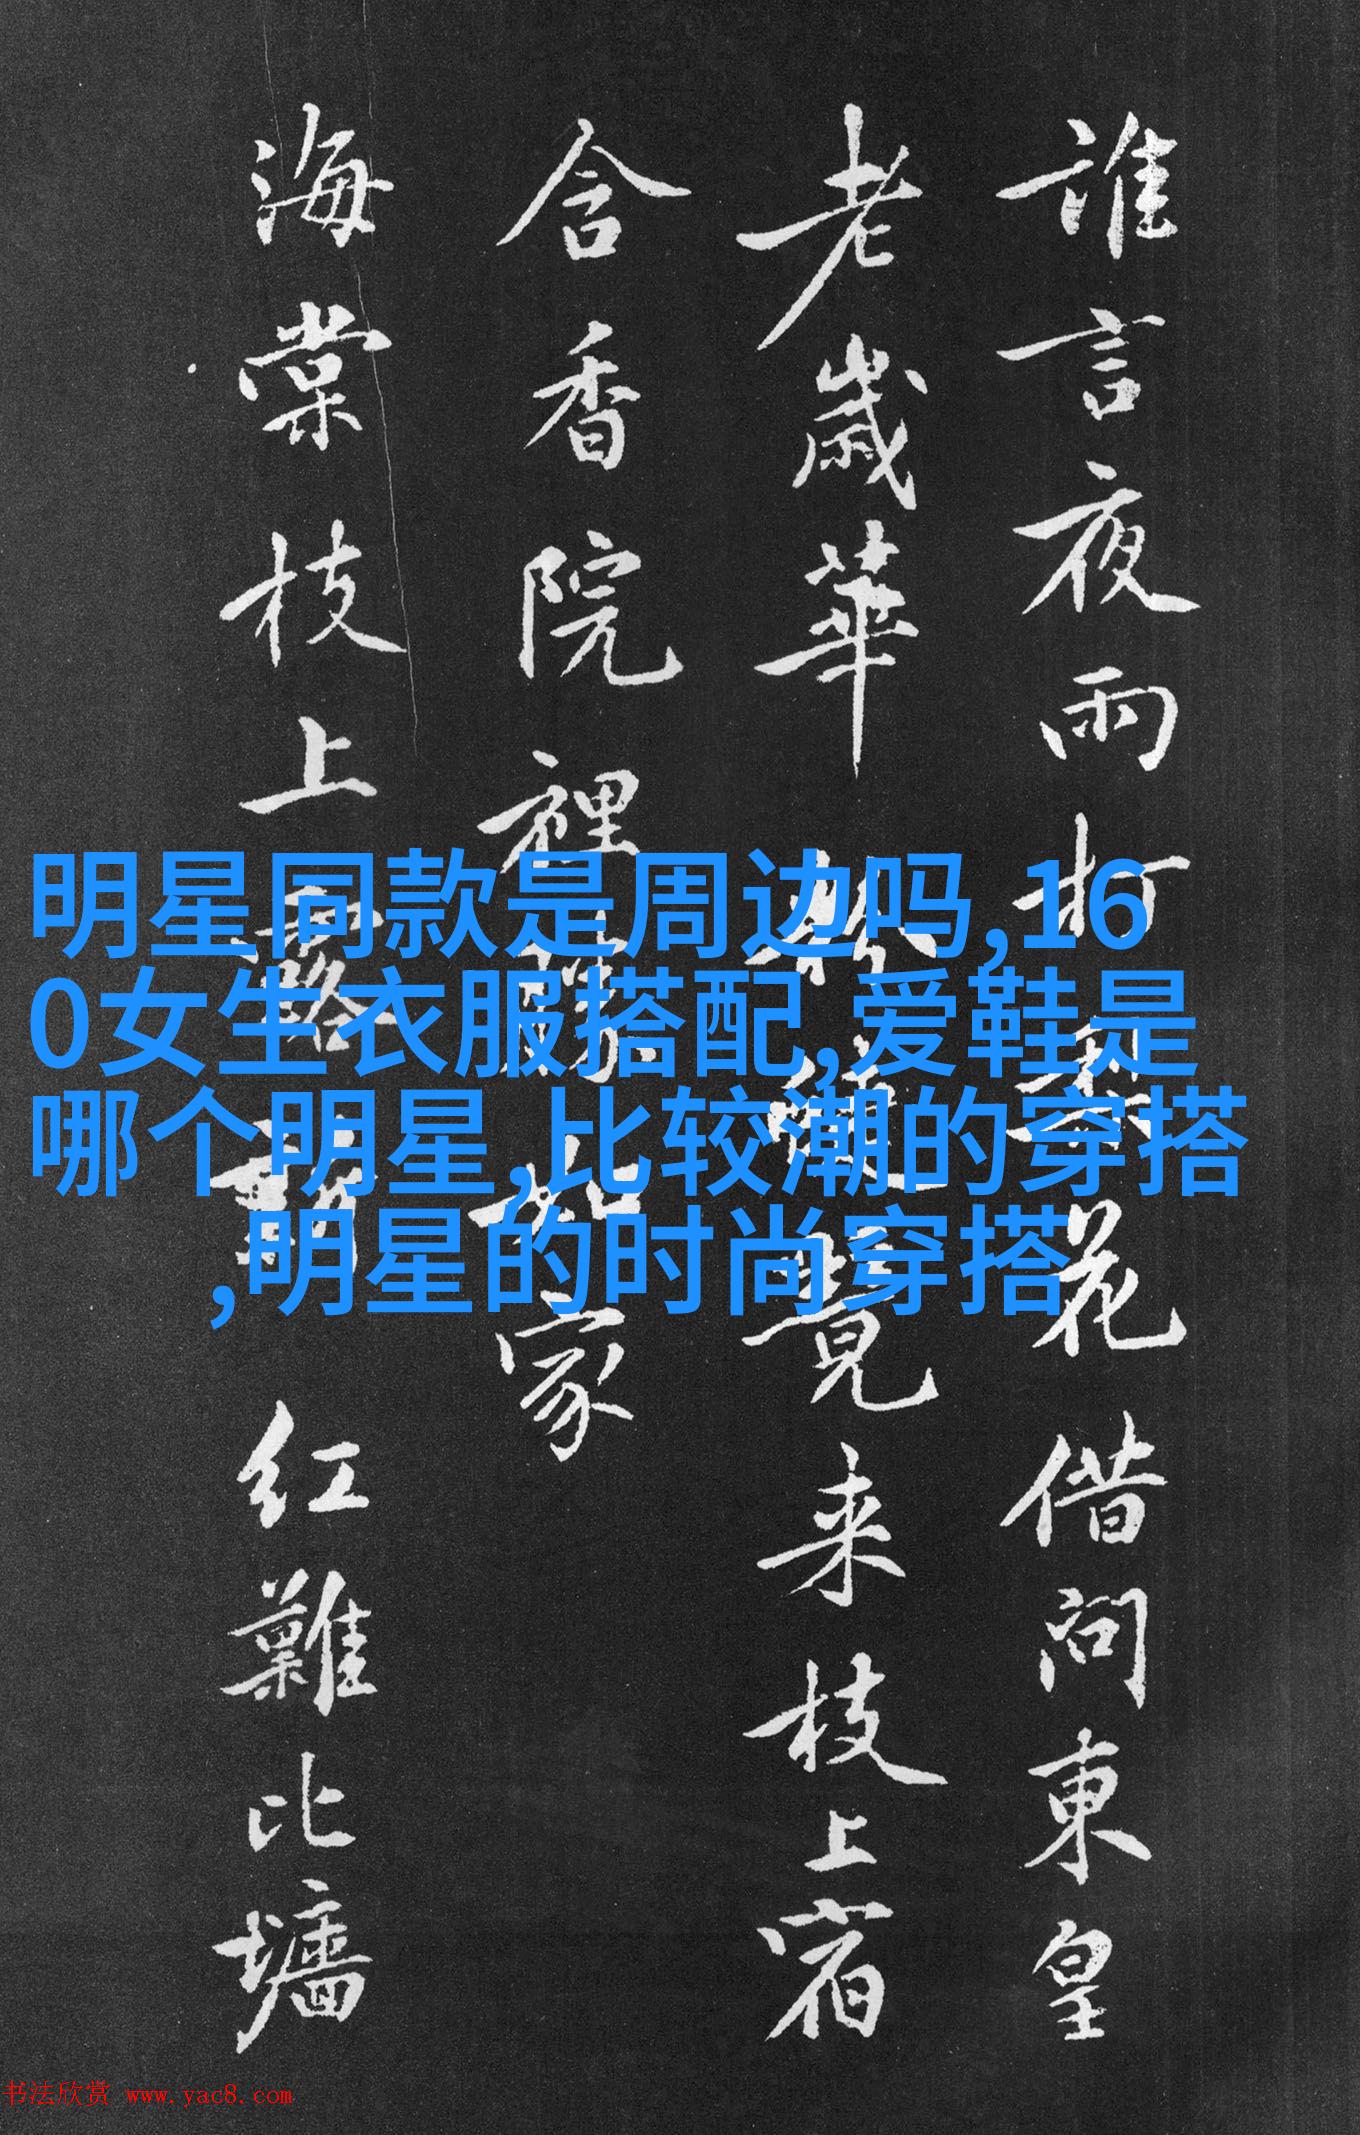 誰言夜雨打梨花借問東皇
老歲華
覺来枝上宿
含香院裡
如家
海棠枝上
红難比墻
明星同款是周边吗,16
0女生衣服搭配,爱鞋是
哪个明星,比较潮的穿搭
,明星的时尚穿搭
书法欣赏 www.yac8.com